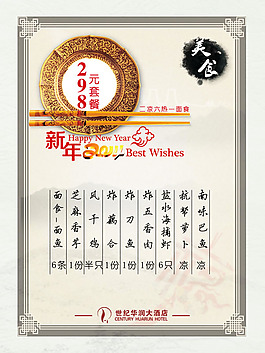 美食
298
元套餐
二凉六热一面食
Happy New Year
新年2011 Best Wishes
南味巴鱼 凉
杭帮萝卜 凉
盐水海捕虾 1份
炸五香肉 1份
炸刀鱼 1份
炸藕合 1份
风干鸡 半只
芝麻香芋 1份
面食一面鱼 6条
世纪华润大酒店
CENTURY HUARUN HOTEL